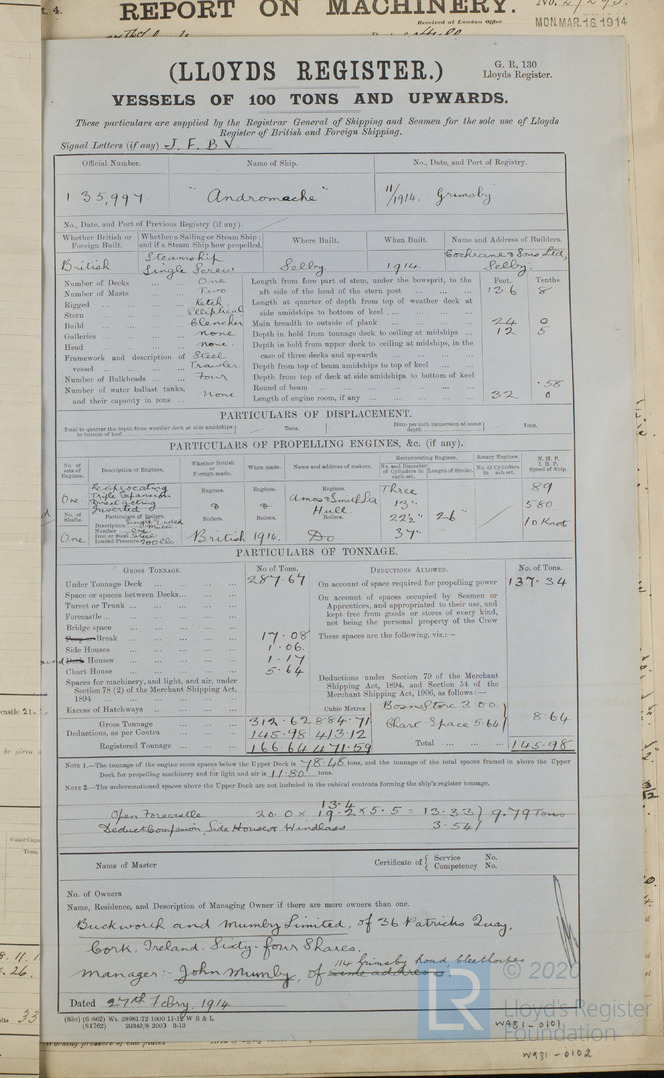 REPORT ON MACHINERY.
Received at London Office
MON. MAR. 16. 1914
(LLOYDS REGISTER.)
G. R. 130
Lloyds Register.
VESSELS OF 100 TONS AND UPWARDS.
These particulars are supplied by the Registrar General of Shipping and Seamen for the sole use of Lloyds
Register of British and Foreign Shipping.
Signal Letters (if any) J. F. B V.
Official Number. Name of Ship. No., Date, and Port of Registry.
135,997 "Andromache" 11/1914. Grimsby
No., Date, and Port of Previous Registry (if any).
Whether British or Foreign Built. Whether a Sailing or Steam Ship; and if a Steam Ship how propelled. Where Built. When Built. Name and Address of Builders.
British Steamship Single Screw Selby 1914 Cochrane & Sons Ltd, Selby.
Number of Decks One
Number of Masts Two
Rigged Ketch
Stern Elliptical
Build Clencher
Galleries none
Head none.
Framework and description of vessel Steel Trawler
Number of Bulkheads Four
Number of water ballast tanks, and their capacity in tons none
Feet. Tenths
Length from fore part of stem, under the bowsprit, to the aft side of the head of the stern post 136 8
Length at quarter of depth from top of weather deck at side amidships to bottom of keel
Main breadth to outside of plank 24 0
Depth in hold from tonnage deck to ceiling at midships 12 5
Depth in hold from upper deck to ceiling at midships, in the case of three decks and upwards
Depth from top of beam amidships to top of keel
Depth from top of deck at side amidships to bottom of keel
Round of beam .58
Length of engine room, if any 32 0
PARTICULARS OF DISPLACEMENT.
Total to quarter the depth from weather deck at side amidships to bottom of keel Tons. Ditto per inch immersion at same depth Tons.
PARTICULARS OF PROPELLING ENGINES, &c. (if any).
No. of sets of Engines. Description of Engines. Whether British or Foreign made. When made. Name and address of makers. Reciprocating Engines. No. and Diameter of Cylinders in each set. Length of Stroke. Rotary Engines. No. of Cylinders in each set. N. H. P. I. H. P. Speed of Ship.
One Reciprocating Triple Expansion Direct Acting Inverted
Engines. Engines. Engines.
Amos & Smith Ld Hull.
Three 13" 22½" 37" 26"
89
580
10 Knots
No. of Shafts. Particulars of Boilers.
Boilers. Boilers. Boilers.
Description Single Ended
Number One
Iron or Steel Steel
Loaded Pressure 200 lbs
One British 1914. Do
PARTICULARS OF TONNAGE.
GROSS TONNAGE. No. of Tons. DEDUCTIONS ALLOWED. No. of Tons.
Under Tonnage Deck 287.67
Space or spaces between Decks
Turret or Trunk
Forecastle
Bridge space
Poop or Break 17.08
Side Houses 1.06.
Deck Houses 1.17
Chart House 5.64
Spaces for machinery, and light, and air, under Section 78 (2) of the Merchant Shipping Act, 1894
Excess of Hatchways
Cubic Metres
Gross Tonnage 312.62 884.71
Deductions, as per Contra 145.98 413.12
Registered Tonnage 166.64 471.59
On account of space required for propelling power 137.34
On account of spaces occupied by Seamen or Apprentices, and appropriated to their use, and kept free from goods or stores of every kind, not being the personal property of the Crew
These spaces are the following, viz.:—
Deductions under Section 79 of the Merchant Shipping Act, 1894, and Section 54 of the Merchant Shipping Act, 1906, as follows:—
Bosns Store 3.00
Chart Space 5.64
8.64
Total 145.98
NOTE 1.—The tonnage of the engine room spaces below the Upper Deck is 78.48 tons, and the tonnage of the total spaces framed in above the Upper
Deck for propelling machinery and for light and air is 11.80 tons.
NOTE 2.—The undermentioned spaces above the Upper Deck are not included in the cubical contents forming the ship's register tonnage.
Open Forecastle 20.0 x 13.4 19.2 x 5.5 = 13.33 9.79 Tons
Deduct Companion Side House & Windlass 3.54
Name of Master Certificate of Service No. Competency No.
No. of Owners
Name, Residence, and Description of Managing Owner if there are more owners than one.
Buckworth and Mumby Limited, of 36 Patricks Quay,
Cork, Ireland. Sixty-four Shares.
114 Grimsby Road Cleethorpes
Manager:- John Mumby, of same address.
Dated 27th Febry, 1914
(81762) 20349/8 2000 3-13
© 2020
LR
Lloyd's Register
Foundation
W981-0101
W981-0102